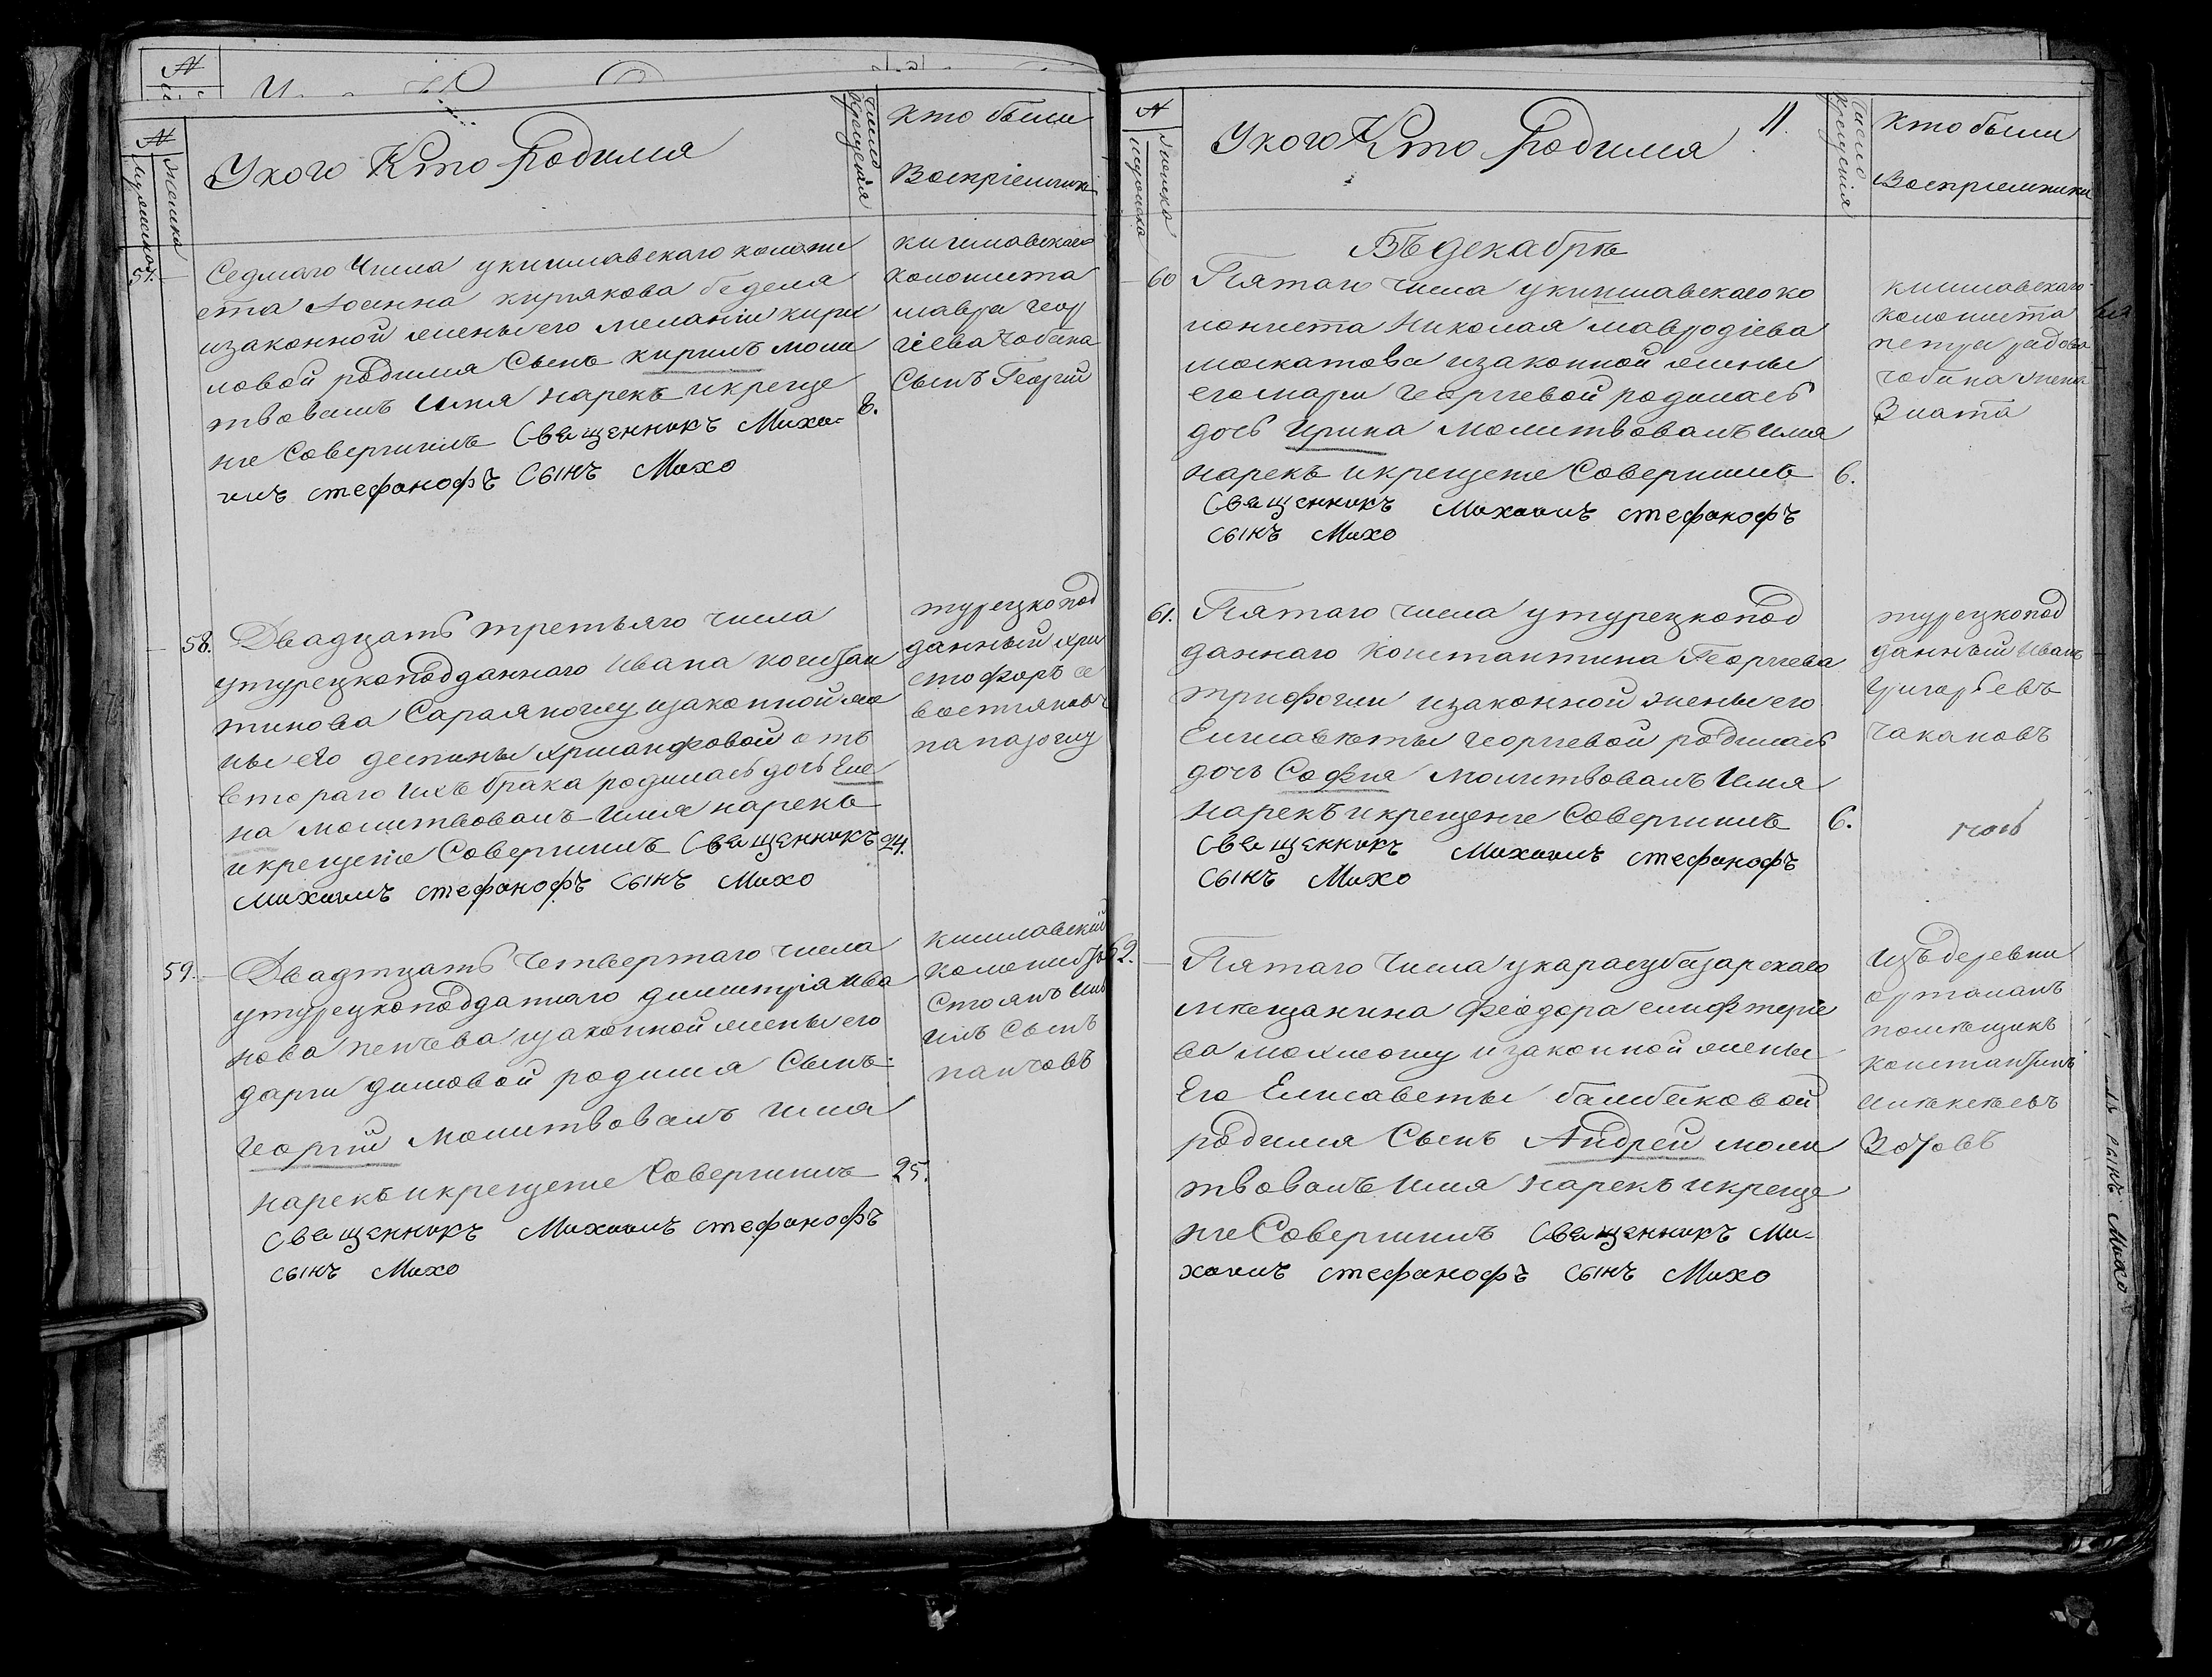 №
Мужеска
Женска
У кого Кто Родился
число крещенія
Кто были
Воспріемники
57.
Седмаго Числа у кишлавскаго колони
ста Іоанна кирякова беделя
изаконной жены его меланіи кири
ловой родился Сынъ кирилъ моли
твовалъ Имя нарекъ икреще
ніе Совершилъ Священникъ Миха-
илъ стефанофъ Сынъ Михо
8.
кишлавскаго
колониста
мавра геор
гіева Чобана
Сынъ Георгій
58.
Двадцать третьяго числа
утурецкоподданнаго Ивана констан
тинова Сараяноглу изаконной же
ны его деспины отъ
втораго ихъ брака родилась дочь Еле
на молитвовалъ Имя нарекъ
и крещеніе Совершилъ Священникъ
Михаилъ стефанофъ Сынъ Михо
24.
турецкопод
данный хри
стофоръ са
востяновъ
папазоглу
59.
Двадтцать Четвертаго числа
утурецкоподданнаго димитрія ива
нова пенчева изаконной жены его
дарьи димовой родился Сынъ
Георгій Молитвовалъ имя
нарекъ икрещеніе Совершилъ
Священникъ Михаилъ стефанофъ
сынъ Михо
25.
кишлавскій
колонистъ
Стоянъ
Сынъ
панчовъ
№
Мужеска
Женска
У кого Кто Родился
11.
Число Крещенія
Кто были
Воспріемники
Въ декабрѣ
60
Пятаго числа укишлавскаго ко
лониста Николая мавродіева
москатова изаконной жены
его маріи Георгіевой родилась
дочь Ирина молитвовалъ имя
нарекъ икрещеніе Совершилъ
Священникъ Михаилъ стефанофъ
сынъ Михо
6.
кишлавскаго
колониста
петра радова
чобана жена
Злата
61.
Пятаго числа утурецкопод
даннаго Константина Георгіева
трифогли изаконной жены его
Елисаветы георгіевой родилась
дочь Софія молитвовалъ Имя
нарекъ икрещеніе Совершилъ
Священникъ Михаилъ стефанофъ
Сынъ Михо
6.
турецкопод
данный Иванъ
Григорьевъ
Чакановъ
62.
Пятаго Числа укарасубазарскаго
мѣщанина Феодора елифтеріе
ва изаконной жены
Его Елисаветы бамбаковой
родился Сынъ Андрей моли
твовалъ имя нарекъ икреще
ніе Совершилъ Священникъ Ми-
хаилъ стефанофъ Сынъ Михо
Изъ деревни
орталанъ
помѣщикъ
Константинъ
Зотовъ